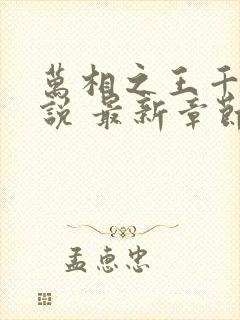 萬相之王千
說 最新章節
孟惠忠